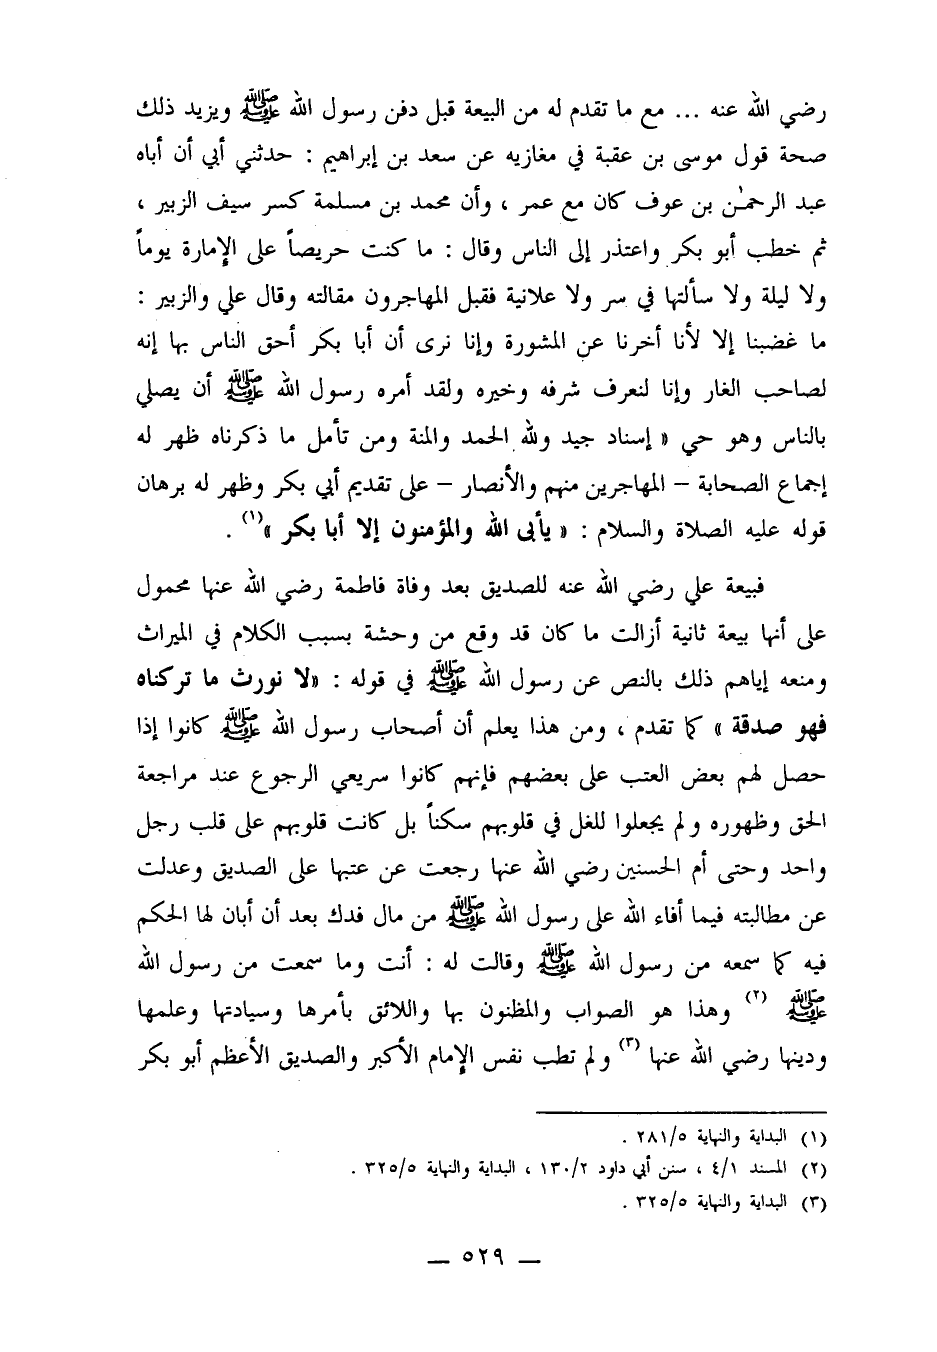 رضي الله عنه ... مع ما تقدم له من البيعة قبل دفن رسول الله ﷺ ويزيد ذلك
صحة قول موسى بن عقبة في مغازيه عن سعد بن إبراهيم : حدثني أبي أن أباه
عبد الرحمٰن بن عوف كان مع عمر ، وأن محمد بن مسلمة كسر سيف الزبير ،
ثم خطب أبو بكر واعتذر إلى الناس وقال : ما كنت حريصاً على الإمارة يوماً
ولا ليلة ولا سألتها في سر ولا علانية فقبل المهاجرون مقالته وقال علي والزبير :
ما غضبنا إلا لأنا أخرنا عن المشورة وإنا نرى أن أبا بكر أحق الناس بها إنه
لصاحب الغار وإنا لنعرف شرفه وخيره ولقد أمره رسول الله ﷺ أن يصلي
بالناس وهو حي « إسناد جيد ولله الحمد والمنة ومن تأمل ما ذكرناه ظهر له
إجماع الصحابة – المهاجرين منهم والأنصار – على تقديم أبي بكر وظهر له برهان
قوله عليه الصلاة والسلام : « يأبى الله والمؤمنون إلا أبا بكر »(١) .
فبيعة علي رضي الله عنه للصديق بعد وفاة فاطمة رضي الله عنها محمول
على أنها بيعة ثانية أزالت ما كان قد وقع من وحشة بسبب الكلام في الميراث
ومنعه إياهم ذلك بالنص عن رسول الله ﷺ في قوله : «لا نورث ما تركناه
فهو صدقة » كما تقدم ، ومن هذا يعلم أن أصحاب رسول الله ﷺ كانوا إذا
حصل لهم بعض العتب على بعضهم فإنهم كانوا سريعي الرجوع عند مراجعة
الحق وظهوره ولم يجعلوا للغل في قلوبهم سكناً بل كانت قلوبهم على قلب رجل
واحد وحتى أم الحسنين رضي الله عنها رجعت عن عتبها على الصديق وعدلت
عن مطالبته فيما أفاء الله على رسول الله ﷺ من مال فدك بعد أن أبان لها الحكم
فيه كما سمعه من رسول الله ﷺ وقالت له : أنت وما سمعت من رسول الله
ﷺ (٢) وهذا هو الصواب والمظنون بها واللائق بأمرها وسيادتها وعلمها
ودينها رضي الله عنها (٣) ولم تطب نفس الإمام الأكبر والصديق الأعظم أبو بكر
(١) البداية والنهاية ٢٨١/٥ .
(٢) المسند ٤/١ ، سنن أبي داود ١٣٠/٢ ، البداية والنهاية ٣٢٥/٥ .
(٣) البداية والنهاية ٣٢٥/٥ .
— ٥٢٩ —